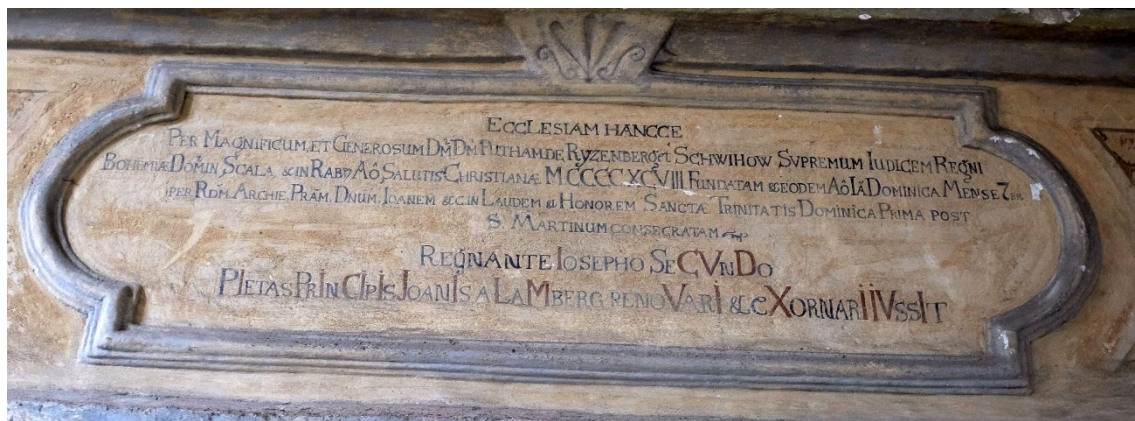 ECCLESIAM HANCCE
PER MAGNIFICUM, ET GENEROSUM DM̃ DM̃ PUTHAM DE RYZENBERG et SCHWIHOW SVPREMUM IUDICEM REGNI
BOHEMIÆ DOMIN SCALA, & IN RABY AO̊ SALUTIS CHRISTIANÆ MCCCCXCVIII FUNDATAM & EODEM AO̊ DOMINICA MENSE 7BR
PER RDM̃. ARCHIE PRÆM. DNUM. IOANEM &C IN LAUDEM & HONOREM SANCTÆ TRINITATIS DOMINICA PRIMA POST
S. MARTINUM CONSEGRATAM
REGNANTE IOSEPHO SECVNDO
PIETAS PRINCIPIS JOANIS A LAMBERG RENOVARI & EXORNARI IVSSIT